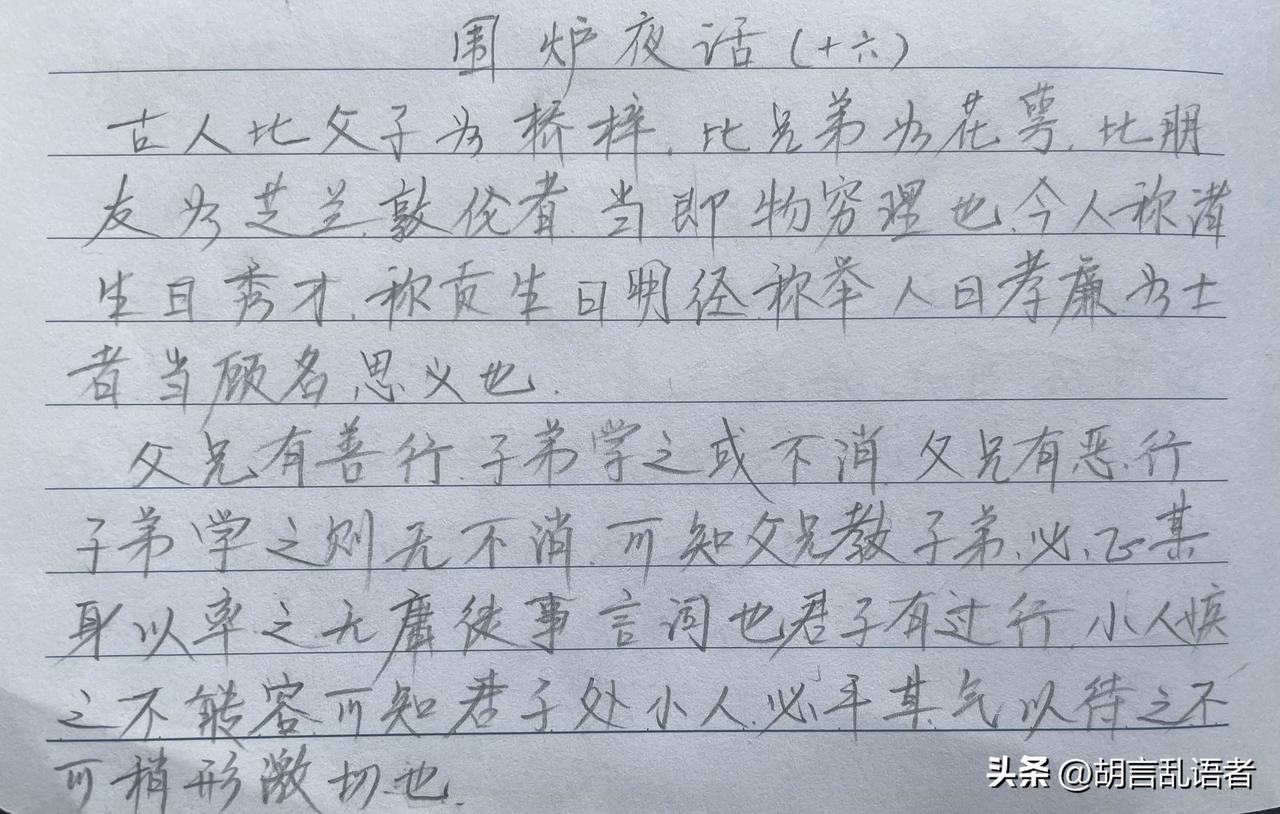 围炉夜话(十六)
古人比父子为桥梓,比兄弟为花萼,比朋
友为芝兰,敦伦者,当即物穷理也,今人称诸
生曰秀才,称贡生曰明经,称举人曰孝廉,为士
者当顾名思义也.
父兄有善行,子弟学之或不消,父兄有恶行
子弟学之则无不消,可知父兄教子弟,必正其
身以率之无庸徒事言词也君子有过行,小人嫉
之不能容可知君子处小人,必平其气以待之不
可稍形激切也.
头条 @胡言乱语者